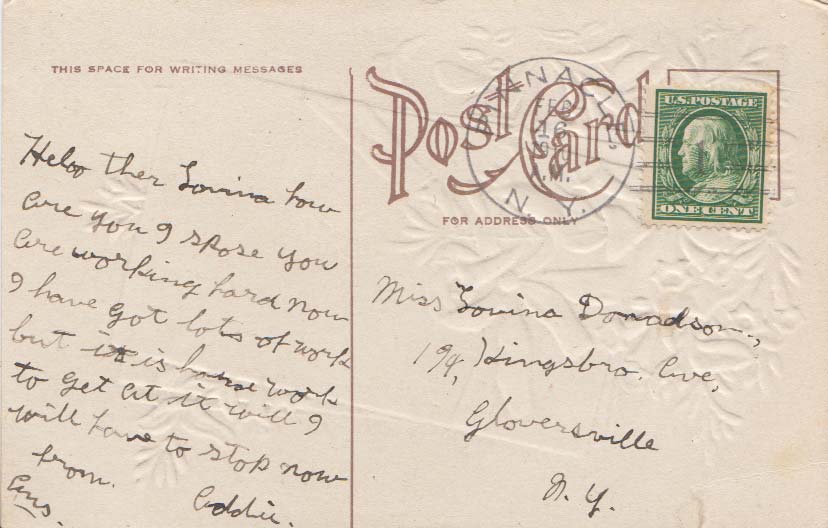 THIS SPACE FOR WRITING MESSAGES
Post Card
FOR ADDRESS ONLY
U.S. POSTAGE
ONE CENT
FEB
16
A.M.
N. Y.
Helo ther Lovina how
are you I spose you
are working hard now
I have got lots of work
but it is work
to get at it will I
will have to stop now
from.
Ans. Addie.
Miss Lovina Donadson,
19, Kingsbro. Ave,
Gloversville
N. Y.